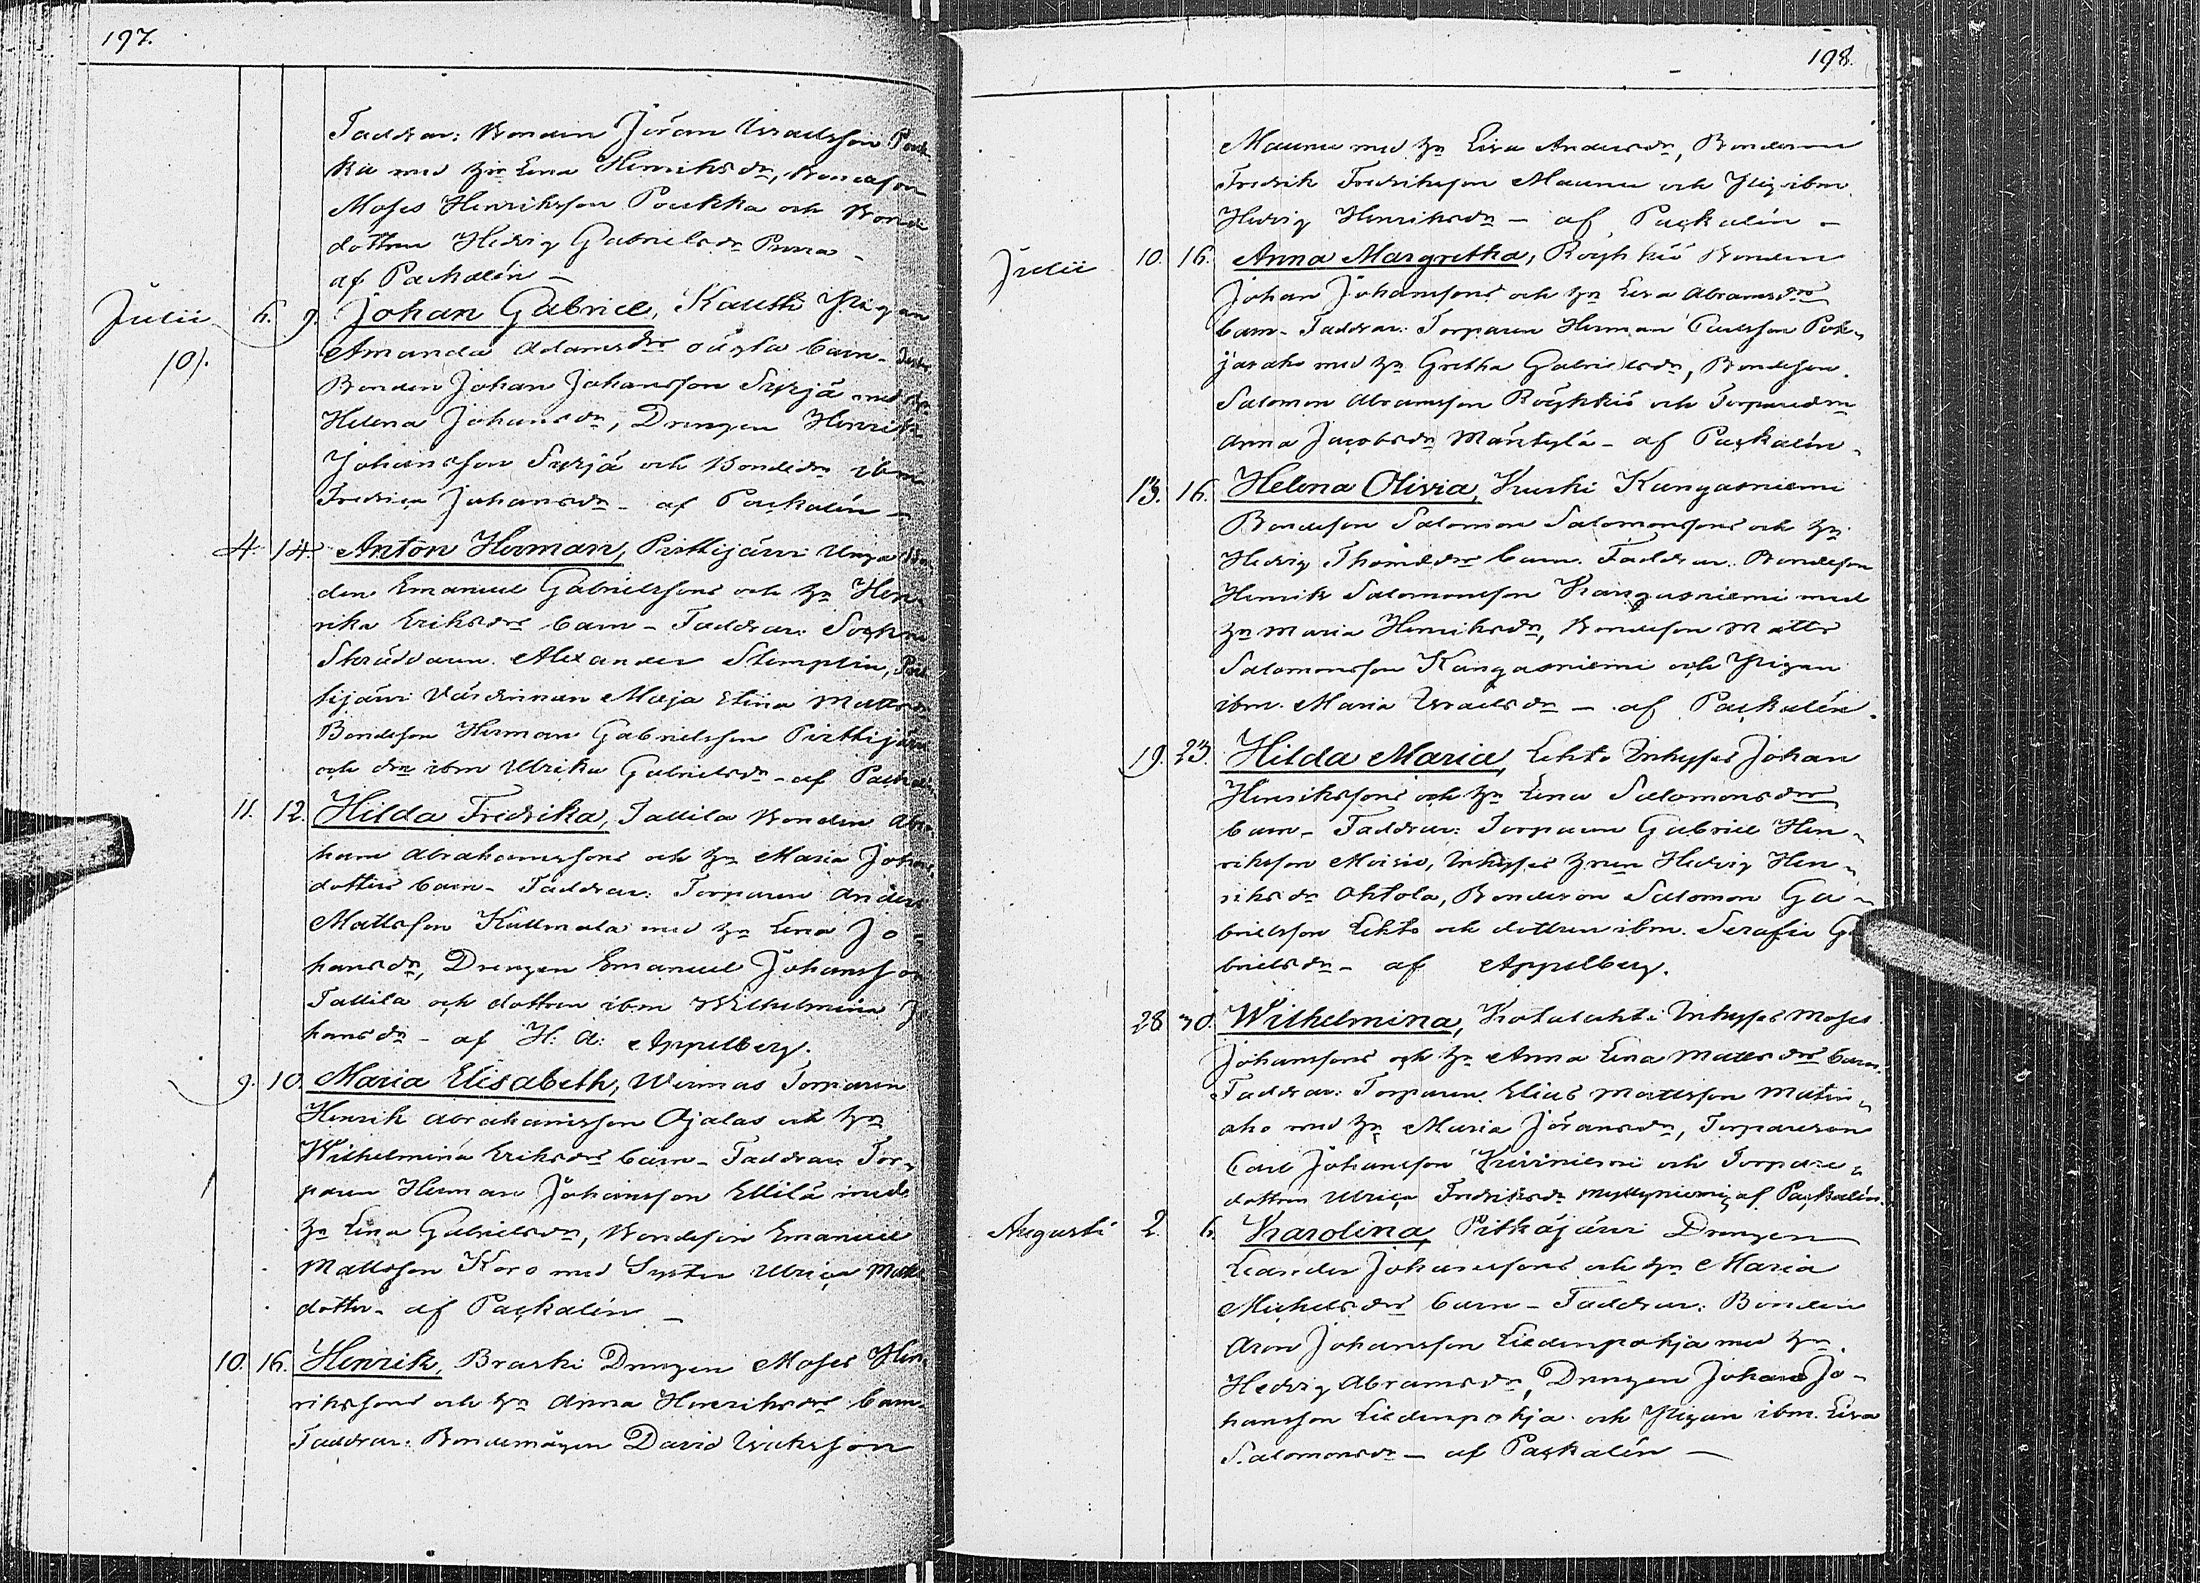 197.
Faddrar: Bonden Jöran Israelsson Pouk
ka med h:n Lena Henriksdr, Bondeson
Moses Henriksson Poukka och Bonde
dottren Hedvig Gabrielsdr Penna –
af Packalén –
Julii 6. 9. Johan Gabriel, Kautti Pigan
10). Amanda Adamsdrs oägta barn –
Bonden Johan Johansson Syrjä med
Helena Johansdr, Drengen Henrik
Johansson Syrjä och Bondedr ibm
Fredrica Johansdr – af Packalén –
4 14. Anton Herman, Pirttijärvi Unga Bon
den Emanuel Gabrielssons och h:n Hen-
rika Eriksdrs barn – Faddrar: Sockne
Skräddaren Alexander Stemplin, Pirt
tijärvi Värdinnan Maja Stina Mattsdr
Bondeson Herman Gabrielsson Pirttijärvi
och dr ibm Ulrika Gabrielsdr – af Packal:
11. 12. Hilda Fredrika, Tallila Bonden Abra
ham Abrahamssons och h:n Maria Johans
dotters barn – Faddrar: Torparen Anders
Mattsson Kullmala med h:n Lena Jo-
hansdr, Drengen Emanuel Johansson
Tallila och dottren ibm Wilhelmina Jo
hansdr – af H: A: Appelberg.
9. 10. Maria Elisabeth, Wermas Torparen
Henrik Abrahamsson Ojalas och h:n
Wilhelmina Eriksdrs barn – Faddrar Tor-
paren Herman Johansson Ellilä med
h:n Lena Gabrielsdr, Bondeson Emanuel
Mattsson Koro med Syster Ulrica Matts
dotter – af Packalén –
10. 16. Henrik, Braski Drengen Moses Hen-
rikssons och h:n Anna Henriksdrs barn –
Faddrar: Bondemågen David Isaksson
198.
Maunu med h:n Lisa Andersdr, Bondeson
Fredrik Fredriksson Maunu och Pig. ibm
Hedvig Henriksdr – af Packalén –
Julii 10. 16. Anna Margretha, Röyhkiö Bonden
Johan Johanssons och h:n Lisa Abramsdrs
barn – Faddrar: Torparen Herman Carlsson Poh-
jaraho med h:n Gretha Gabrielsdr, Bondeson
Salomon Abramsson Röyhkiö och Torparedr
Anna Jacobsdr Mäntylä – af Packalén –
13. 16. Helena Olivia, Kurki Kangasniemi
Bondeson Salomon Salomonssons och h:n
Hedvig Thomædrs barn. Faddrar: Bondeson
Henrik Salomonsson Kangasniemi med
h:n Maria Henriksdr, Bondeson Matts
Salomonsson Kangasniemi och Pigan
ibm. Maria Israelsdr – af Packalén.
19. 23. Hilda Maria, Lehto Inhyses Johan
Henrikssons och h:n Lena Salomonsdrs
barn – Faddrar: Torparen Gabriel Hen-
riksson Moisio, Inhyses h:run Hedvig Hen-
riksdr Ohtola, Bondeson Salomon Ga-
brielsson Lehto och dottren ibm. Serafia Ga
brielsdr – af Appelberg.
28 30. Wilhelmina, Kotalahti Inhyses Moses
Johanssons och h:n Anna Lena Mattsdrs barn.
Faddrar: Torparen Elias Mattsson Matin-
aho med h:n Maria Jöransdr, Torpareson
Carl Johansson Kiviniemi och Torpare-
dottren Ulrica Fredriksdr Myllyniemi, af Packalén.
Augusti 2. 6. Karolina, Pitkäjärvi Drengen
Leander Johanssons och h:n Maria
Michelsdrs barn – Faddrar: Bonden
Aron Johansson Liedenpohja med h:n
Hedvig Abramsdr, Drengen Johan Jo-
hansson Liedenpohja och Pigan ibm. Lisa
Salomonsdr – af Packalén –